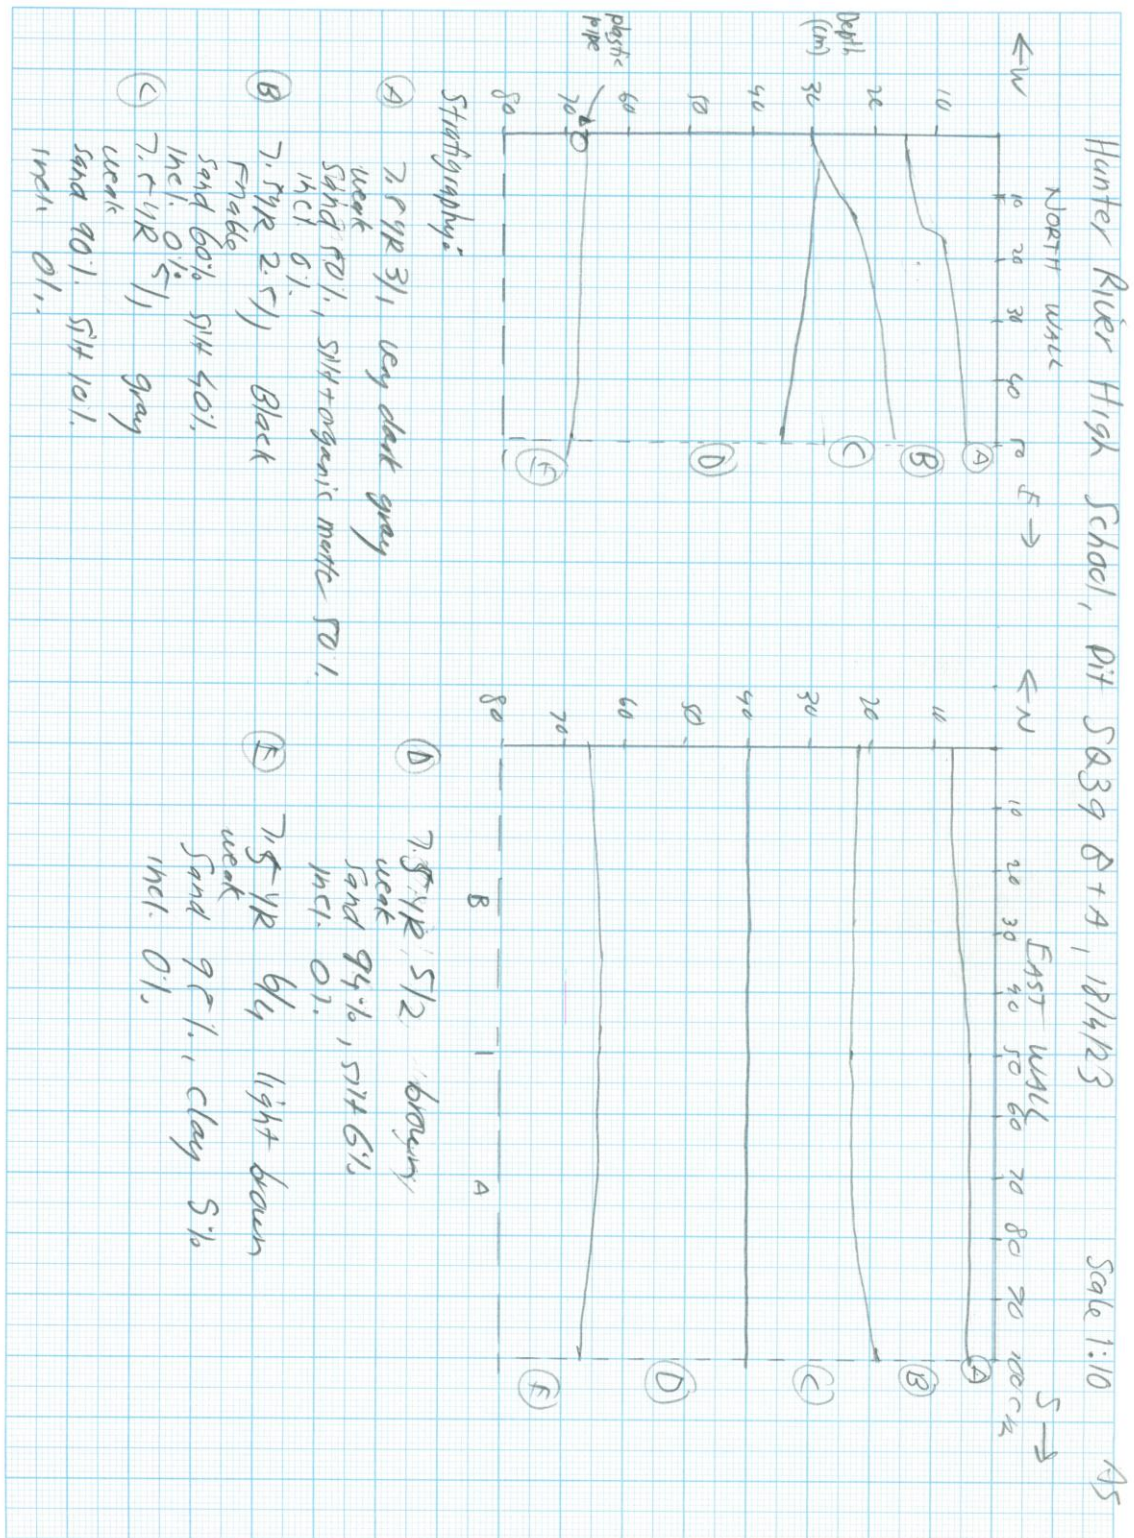 Hunter River High School, Pit SQ39 B+A, 18/4/23 Scale 1:10 AS
← W NORTH WALL E →
10 20 30 40 50
10
20
30
40
50
60
70
80
Depth
(cm)
plastic
pipe
A
B
C
D
E
← N EAST WALL S →
10 20 30 40 50 60 70 80 90 100cm
10
20
30
40
50
60
70
80
A
B
C
D
E
B | A
Stratigraphy:
A 7.5YR 3/1 very dark gray
weak
Sand 50%, silt+organic matter 50%
incl. 0%
B 7.5YR 2.5/1 Black
Friable
Sand 60% silt 40%
incl. 0%
C 7.5YR 5/1 gray
weak
Sand 90% silt 10%
incl. 0%
D 7.5YR 5/2 brown
weak
Sand 94%, silt 6%
incl. 0%
E 7.5YR 6/4 light brown
weak
Sand 95%, clay 5%
incl. 0%